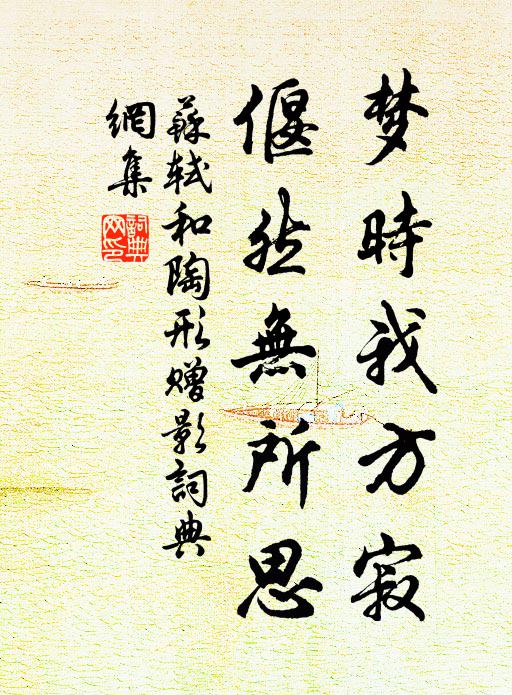 梦時我方寂
偃然無所思
蘇軾和陶形赠影詞典
網集
詞典
网印